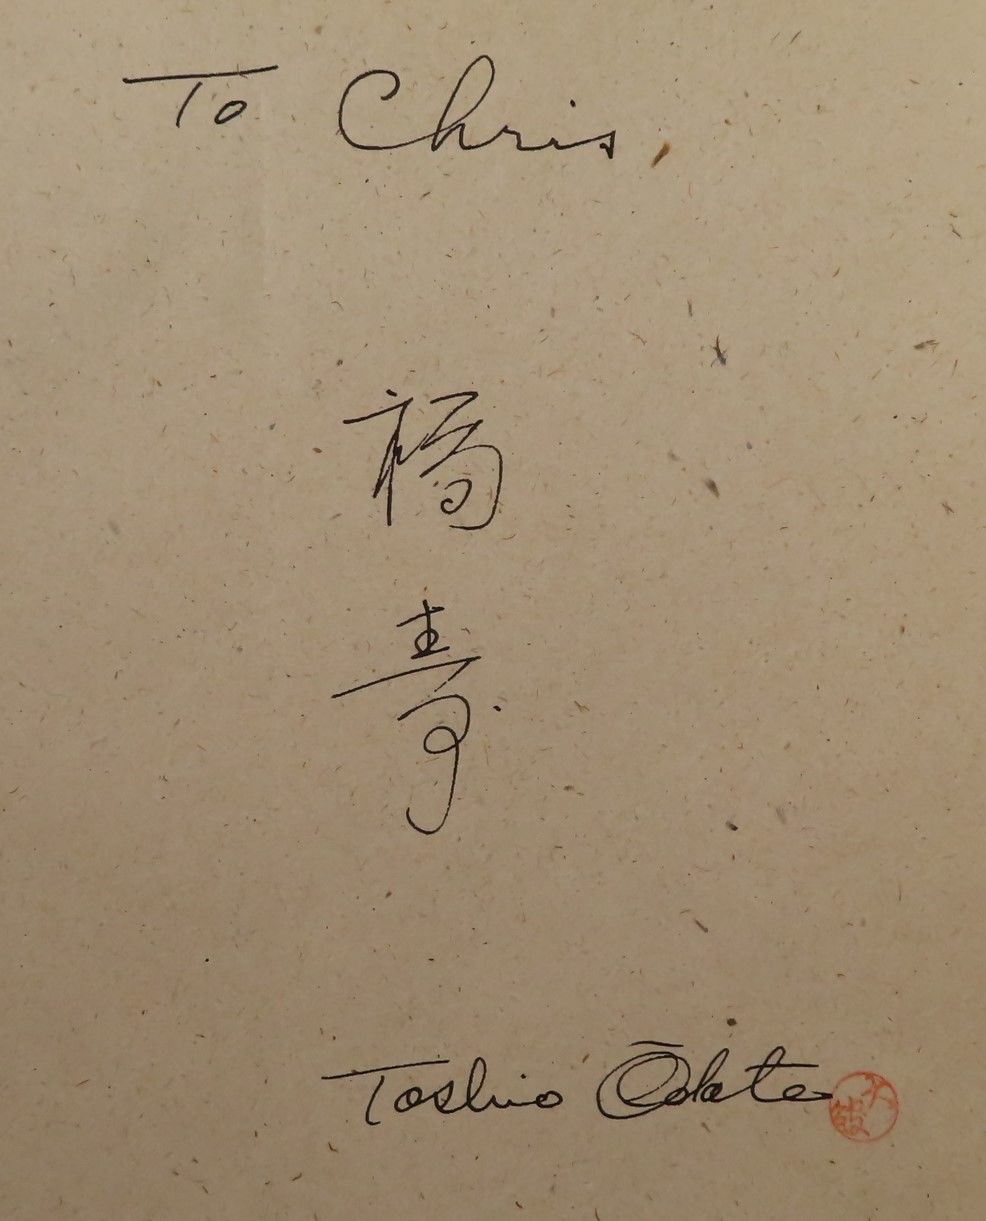 To Chris,
福
寿
Toshio Ōdate